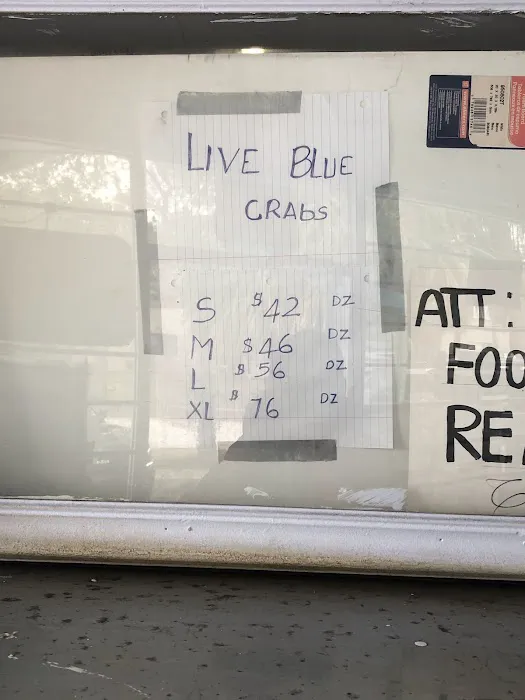 LIVE BLUE
CRAbS
S $42 DZ
M $46 DZ
L $56 DZ
XL $76 DZ
ATT:
FOO
RE